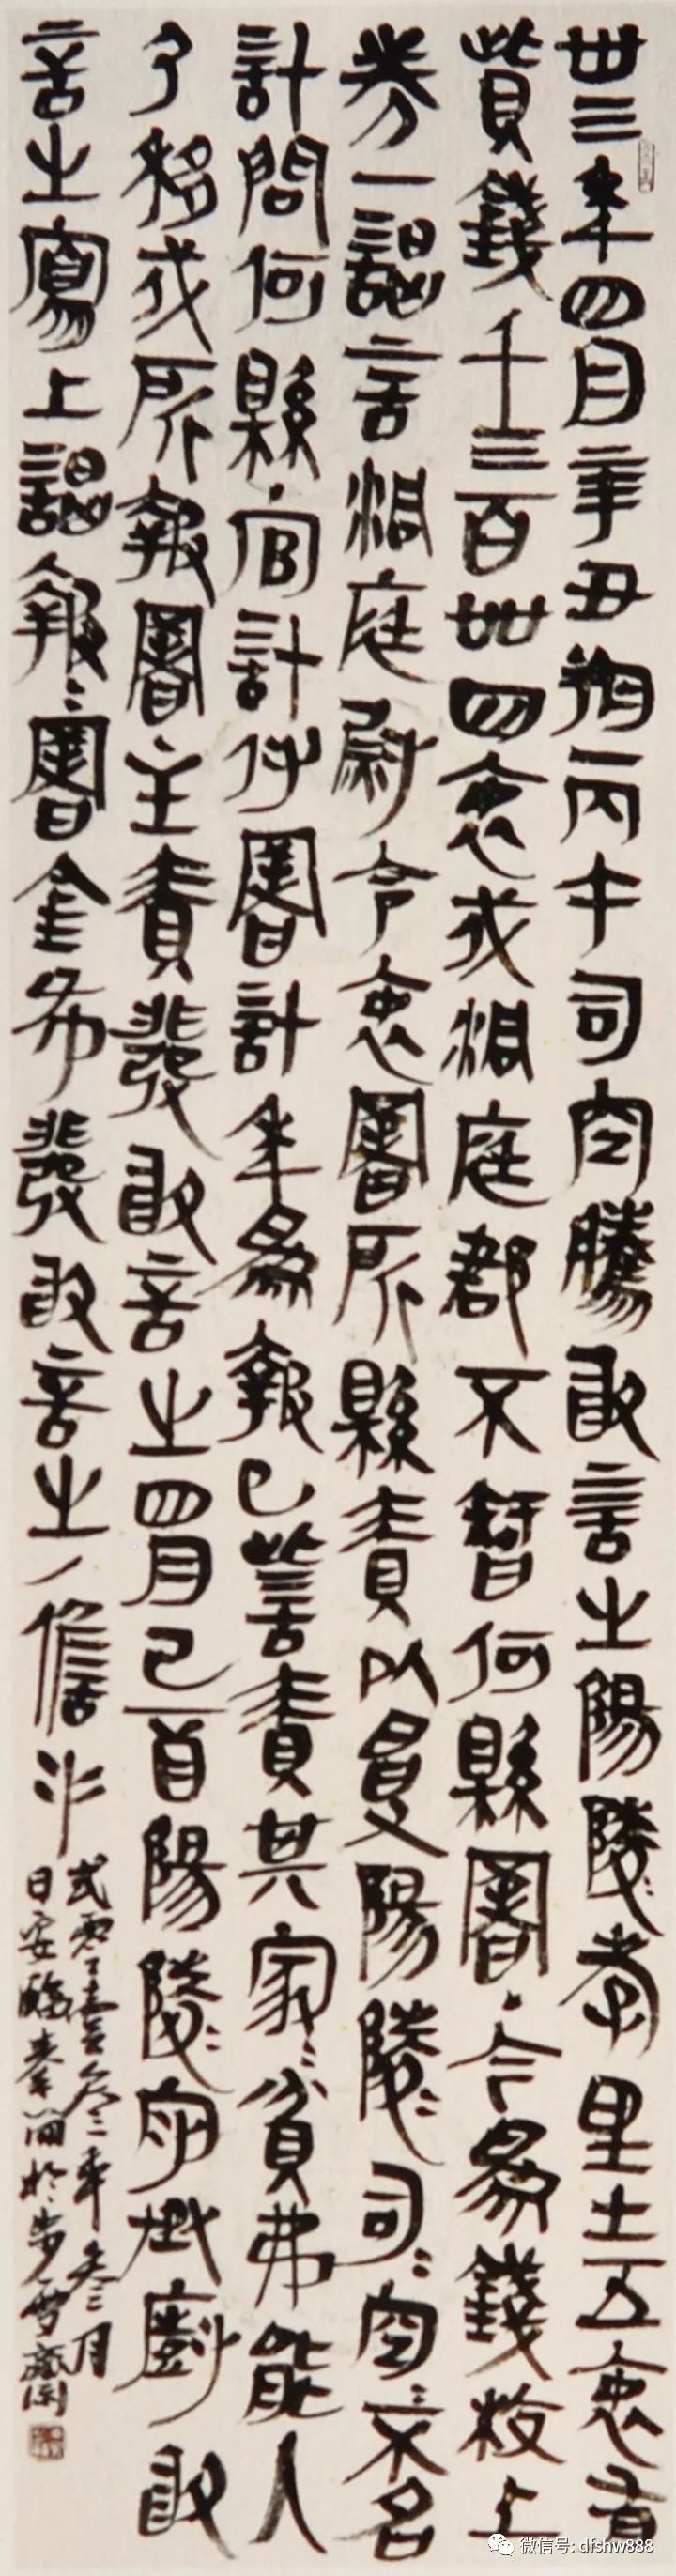 卅三年四月辛丑朔丙午司空騰敢言之陽陵孝里士五衷有
貲錢千三百卌四衷戍洞庭郡不智何縣署今為錢校上
券一謁言洞庭尉令衷署所縣責以受陽陵司〻空不名
計問何縣官計付署計年為報已訾責其家〻貧弗能入
乃移戍所報署主責發敢言之四月己酉陽陵守丞廚敢
言之寫上謁報〻署金布發敢言之儋手
弍零壹叁年叁月
日安臨秦簡於步雪齋
微信号: dfshw888